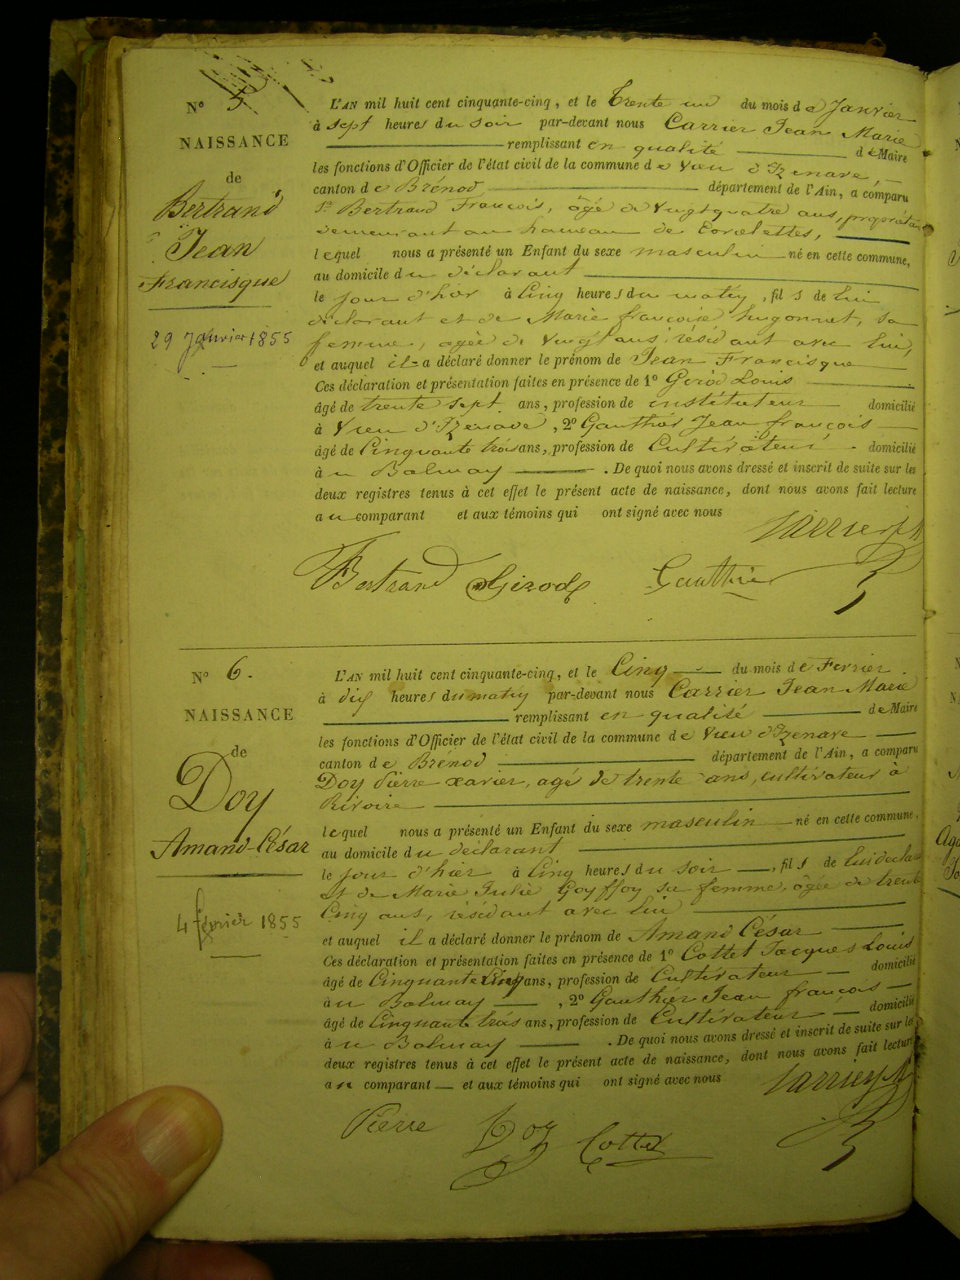 N° 5
NAISSANCE
de
Bertrand
Jean
Francisque
29 Janvier 1855
L'AN mil huit cent cinquante-cinq, et le Trente un du mois de Janvier
à sept heures du soir par-devant nous Carrier Jean Marie
remplissant en qualité de Maire
les fonctions d'Officier de l'état civil de la commune de Vieu d'Izenave,
canton de Brénod département de l'Ain, a comparu
Sr Bertrand François, âgé de vingt quatre ans, propriétaire
demeurant au hameau de Corcelettes,
lequel nous a présenté un Enfant du sexe masculin né en cette commune,
au domicile du déclarant
le jour d'hier à Cinq heures du matin, fils de lui
déclarant et de Marie françoise hugonnet, sa
femme, agée de vingt ans, résidant avec lui,
et auquel il a déclaré donner le prénom de Jean Francisque
Ces déclaration et présentation faites en présence de 1° Girod Louis
âgé de trente sept ans, profession de instituteur domicilié
à Vieu d'Izenave, 2° Gauthier Jean françois
âgé de Cinquante trois ans, profession de Cultivateur domicilié
à u Balmay. De quoi nous avons dressé et inscrit de suite sur les
deux registres tenus à cet effet le présent acte de naissance, dont nous avons fait lecture
au comparant et aux témoins qui ont signé avec nous
Carrier J M
Bertrand Girod Gauthier
N° 6.
NAISSANCE
de
Doy
Amand-César
4 février 1855
L'AN mil huit cent cinquante-cinq, et le Cinq du mois de Fevrier
à dix heures du matin par-devant nous Carrier Jean Marie
remplissant en qualité de Maire
les fonctions d'Officier de l'état civil de la commune de Vieu d'Izenave
canton de Brénod département de l'Ain, a comparu
Doy Pierre xavier, agé de trente ans, cultivateur à
Rivoire
lequel nous a présenté un Enfant du sexe masculin né en cette commune,
au domicile du déclarant
le jour d'hier à Cinq heures du soir, fils de lui déclarant
et de Marie Julie Goyffoy sa femme, âgée de trente
Cinq ans, résidant avec lui
et auquel il a déclaré donner le prénom de Amand César
Ces déclaration et présentation faites en présence de 1° Cottet Jacques Louis
âgé de Cinquante Cinq ans, profession de Cultivateur domicilié
à u Balmay, 2° Gauthier Jean françois
âgé de Cinquante trois ans, profession de Cultivateur domicilié
à u Balmay. De quoi nous avons dressé et inscrit de suite sur les
deux registres tenus à cet effet le présent acte de naissance, dont nous avons fait lecture
au comparant et aux témoins qui ont signé avec nous
Carrier J M
Pierre Doy Cottet